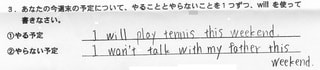 3. あなたの今週末の予定について、やることとやらないことを1つずつ、will を使って
書きなさい。
①やる予定 I will play tennis this weekend.
②やらない予定 I won't talk with my father this
weekend.